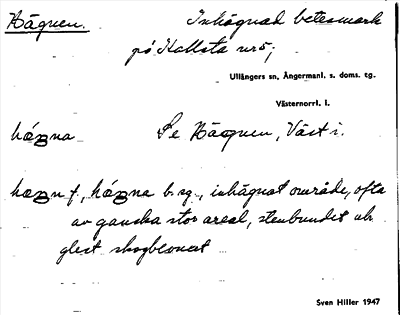 Hägnen. Inhägnad betesmark
på Kallsta nr 5;
Ullångers sn, Ångermanl. s. doms. tg.
Västernorrl. l.
Se Hägnen, Väst i.
f., b. sg., inhägnat område, ofta
av ganska stor areal, stenbundet och
glest skogbevuxet
Sven Hiller 1947